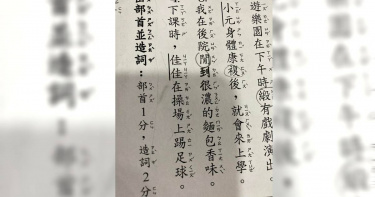 遊樂園在下午時緞有戲劇演出。
小元身體康複後，就會來上學。
我在後院聞到很濃的麵包香味。
下課時，佳佳在操場上踢足球。
部首並造詞：部首1分，造詞2分